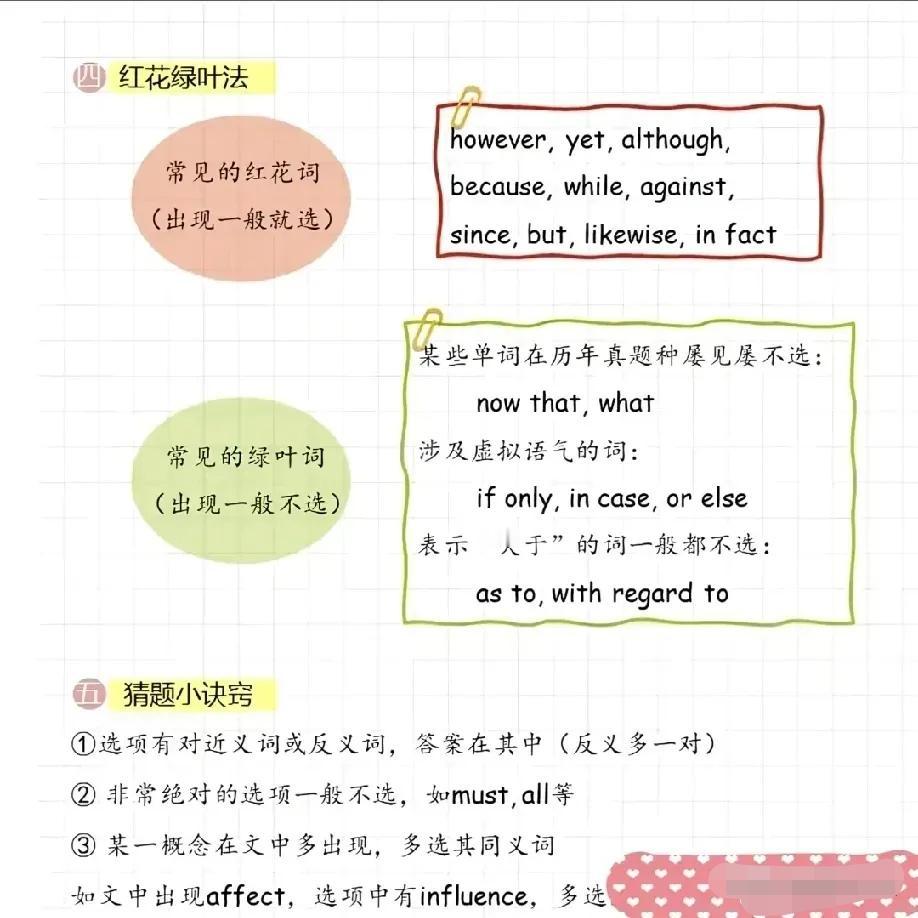 四 红花绿叶法
常见的红花词
（出现一般就选）
however, yet, although,
because, while, against,
since, but, likewise, in fact
常见的绿叶词
（出现一般不选）
某些单词在历年真题种屡见屡不选：
now that, what
涉及虚拟语气的词：
if only, in case, or else
表示 于”的词一般都不选：
as to, with regard to
五 猜题小诀窍
①选项有对近义词或反义词，答案在其中（反义多一对）
② 非常绝对的选项一般不选，如must, all等
③ 某一概念在文中多出现，多选其同义词
如文中出现affect，选项中有influence，多选